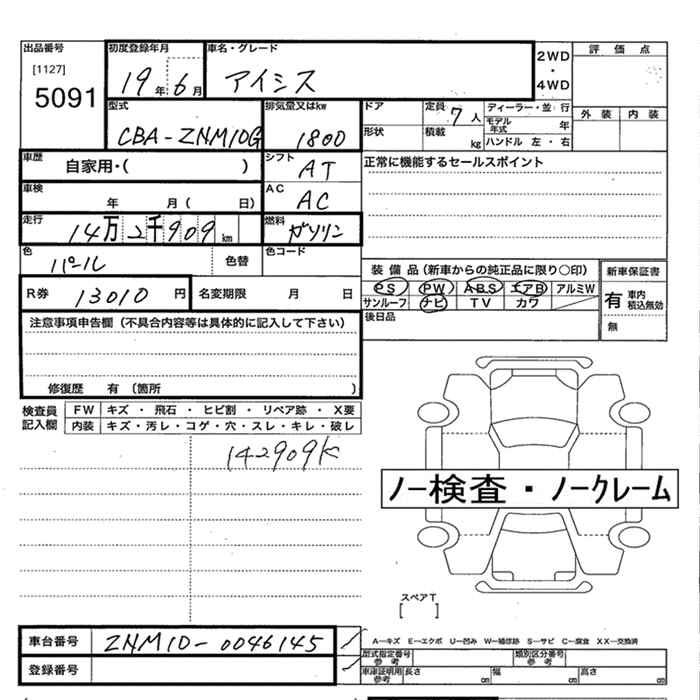 出品番号 初度登録年月 車名・グレード 2WD ・ 4WD 評価点
[1127]
5091 19年 6月 アイシス
型式 排気量又はkw ドア 定員 7人 ディーラー・並 行 外装 内装
CBA-ZNM10G 1800 形状 積載 kg モデル年式 年
ハンドル 左・右
車歴 自家用・( ) シフト AT 正常に機能するセールスポイント
車検 年 月( 日) AC AC
走行 14万2千909km 燃料 ガソリン
色 パール 色替 色コード
装備品(新車からの純正品に限り○印) 新車保証書
PS PW ABS エアB アルミW 有 車内積込無効
サンルーフ ナビ TV カワ 無
R券 13010円 名変期限 月 日
後日品
注意事項申告欄(不具合内容等は具体的に記入して下さい)
修復歴 有(箇所 )
検査員記入欄 FW キズ・飛石・ヒビ割・リペア跡・X要
内装 キズ・汚レ・コゲ・穴・スレ・キレ・破レ
142909K
ノー検査・ノークレーム
スペアT
[ ]
車台番号 ZNM10-0046145
A―キズ E―エクボ U―凹み W―補修跡 S―サビ C―腐食 XX―交換済
登録番号 型式指定番号 参考 類別区分番号 参考
車庫証明用 参考 長さ cm 幅 cm 高さ cm